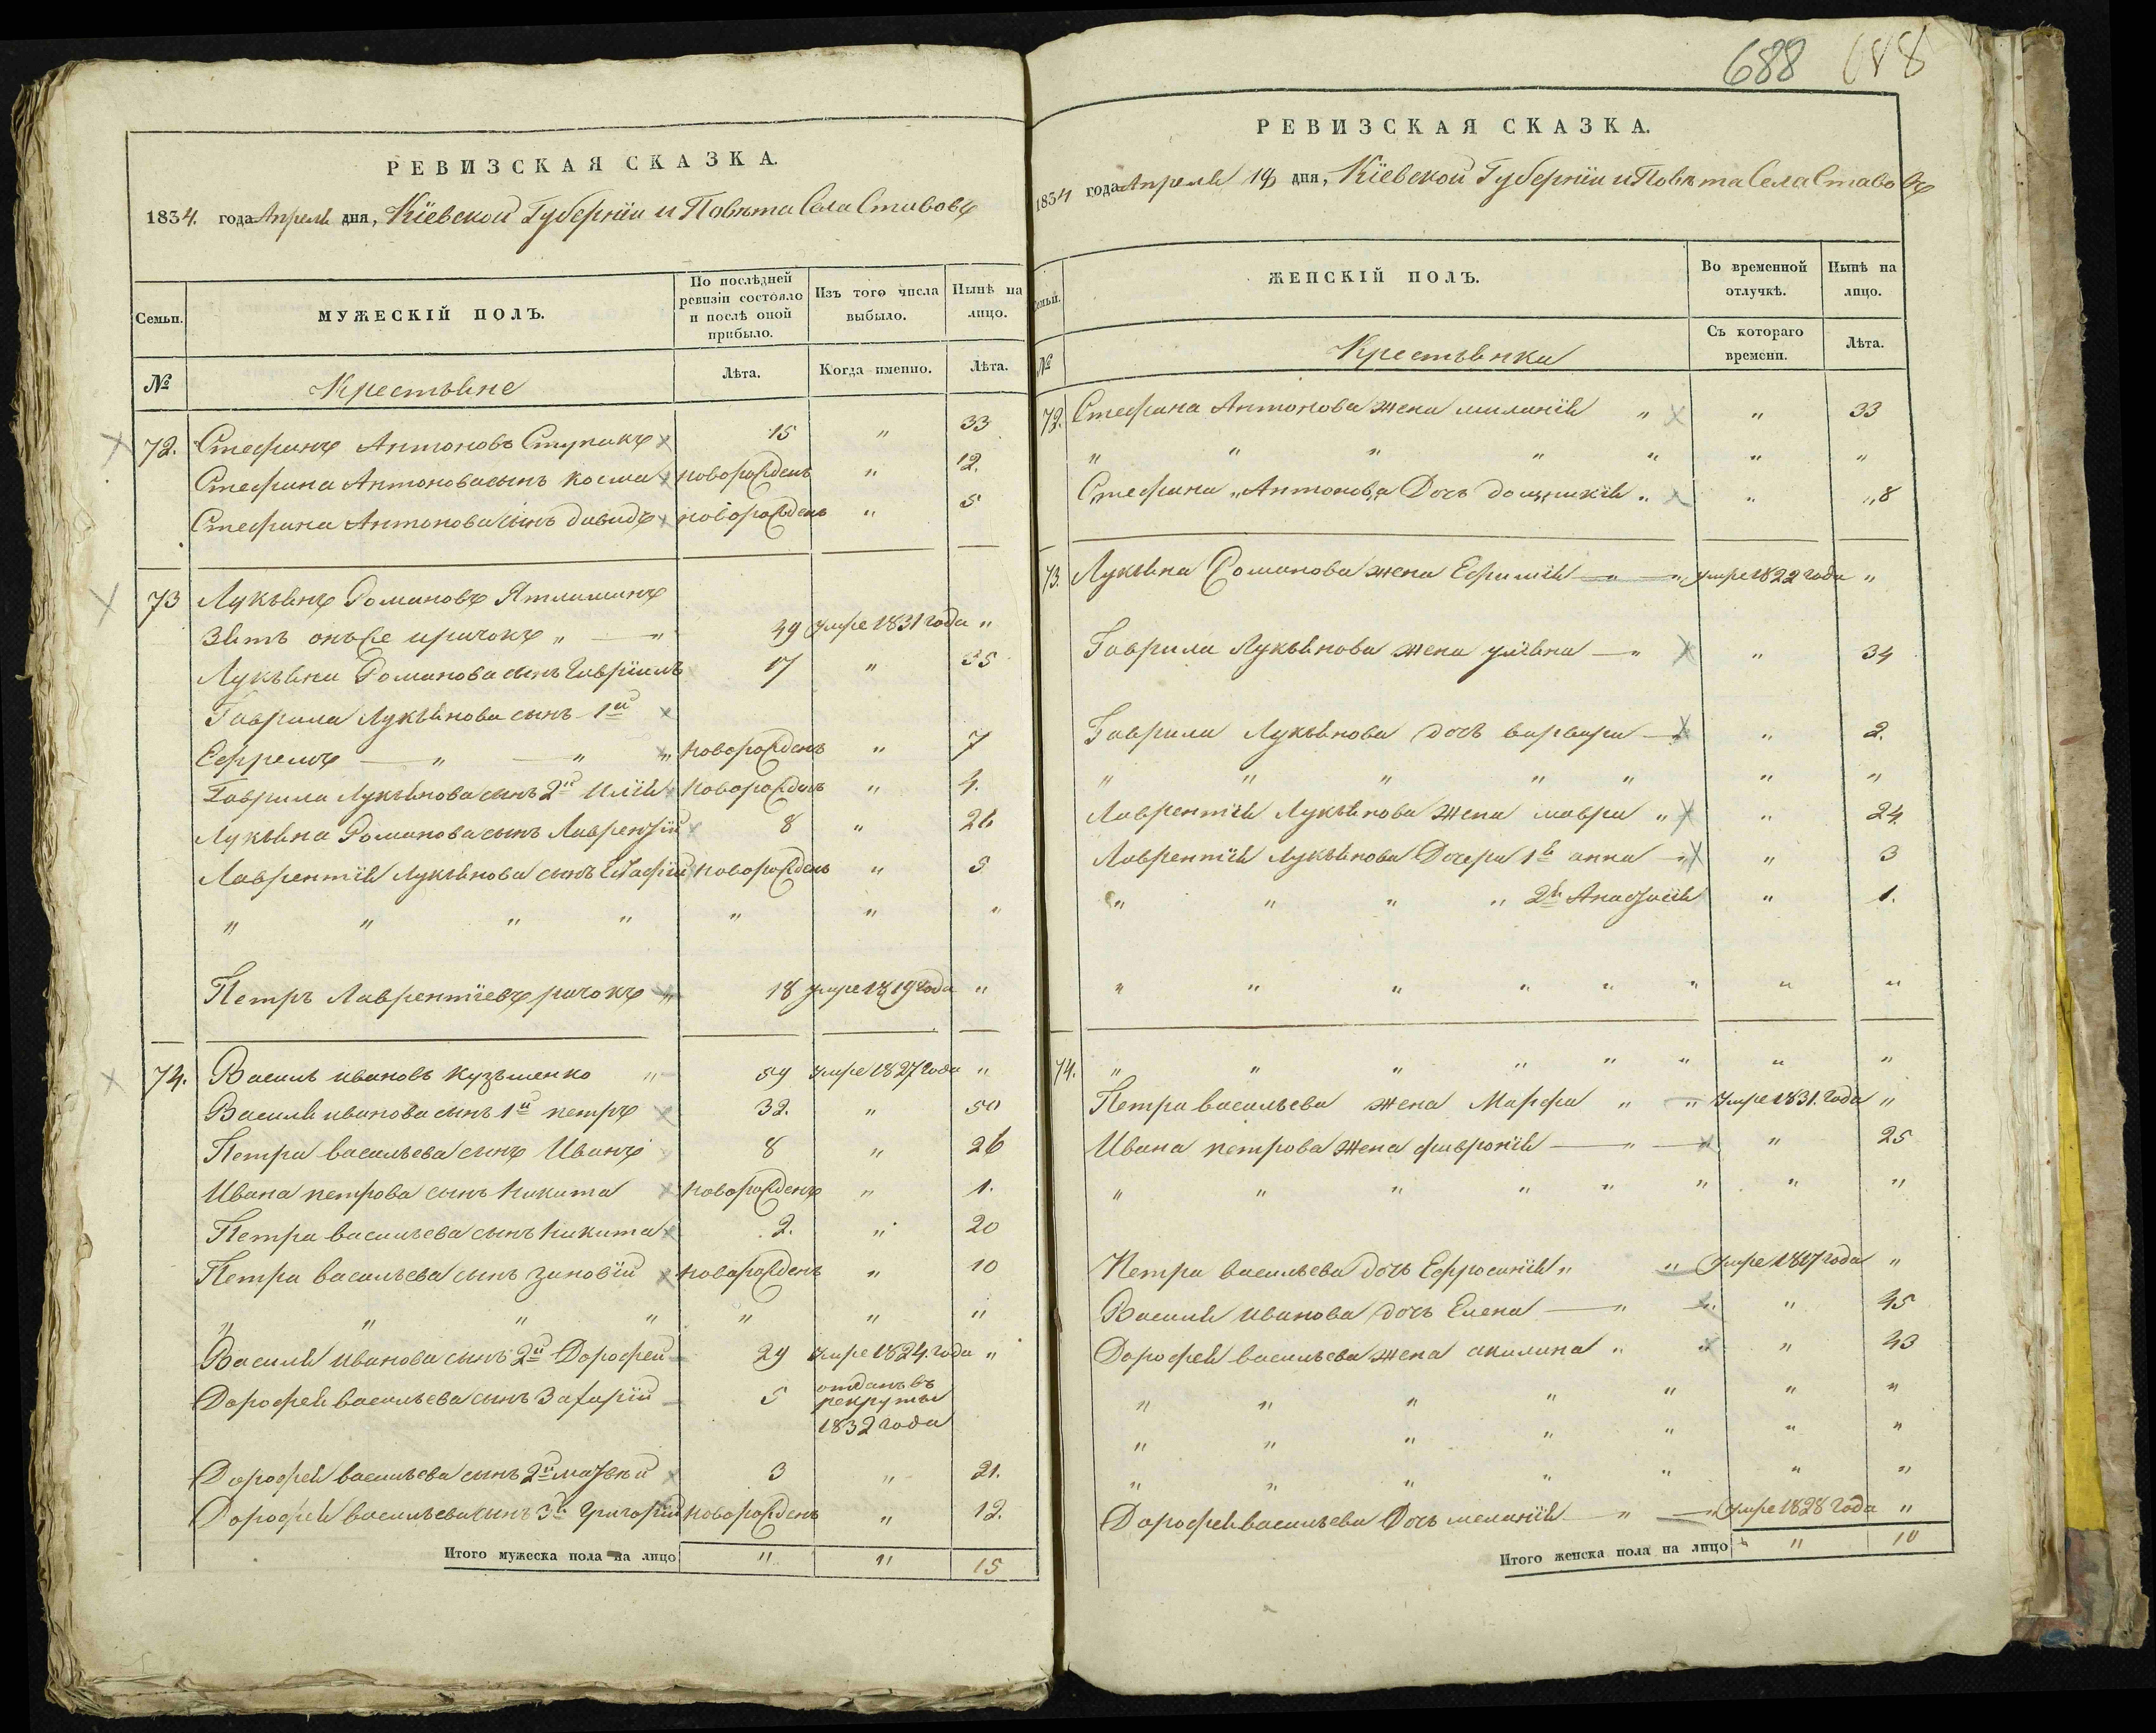 688 688
РЕВИЗСКАЯ СКАЗКА.
1834. года Апреля дня, Кіевской Губерніи и Повѣта Села Ставовъ
Семьи.
МУЖЕСКІЙ ПОЛЪ.
По послѣдней ревизіи состояло и послѣ оной прибыло.
Изъ того числа выбыло.
Нынѣ на лицо.
№
Крестьяне
Лѣта.
Когда именно.
Лѣта.
72. Стефанъ Антоновъ Ступакъ 15 " 33
Стефана Антонова сынъ Косма новорожденъ " 12.
Стефана Антонова сынъ давидъ новорожденъ " 5
73 Лукьянъ Романовъ
Зять онъже 49 умре 1831 года "
Лукьяна Романова сынъ Гавріилъ 17 " 35
Гаврила Лукьянова сынъ 1й
Ефремъ — " — " " новорожденъ " 7
Гаврила Лукьянова сынъ 2й Илія новорожденъ " 4.
Лукьяна Романова сынъ Лаврентій 8 " 26
Лаврентія Лукьянова сынъ новорожденъ " 5
" " " " " " "
Петръ Лаврентіевъ рачокъ " 18 умре 1819 года "
74. Василь ивановъ кузьменко " 59 умре 1827 года "
Василя иванова сынъ 1й петръ 32. " 50
Петра васильева сынъ Иванъ 8 " 26
Ивана петрова сынъ Никита новорожденъ " 1.
Петра васильева сынъ Никита 2. " 20
Петра васильева сынъ зиновій новорожденъ " 10
" " " " " " "
Василя иванова сынъ 2й Дорофей 29 умре 1824. года "
Дорофея васильева сынъ Захарій 5 отданъ въ
рекруты
1832 года
Дорофея васильева сынъ 2й матвѣй 3 " 21.
Дорофея васильева сынъ 3й Григорій новорожденъ " 12.
Итого мужеска пола на лицо " " 15
РЕВИЗСКАЯ СКАЗКА.
1834 года Апреля 18 дня, Кіевской Губерніи и Повѣта Села Ставовъ
Семьи.
ЖЕНСКІЙ ПОЛЪ.
Во временной отлучкѣ.
Нынѣ на лицо.
№
Крестьянки
Съ котораго времени.
Лѣта.
72. Стефана Антонова жена миланія " " 33
" " " " " " "
Стефана Антонова Дочь домникія " " 8
73. Лукьяна Романова жена Ефимія — " — " умре 1822 года "
Гаврила Лукьянова жена уліяна — " " 34
Гаврила Лукьянова дочь варвара — " 2.
" " " " " " "
Лаврентія Лукьянова жена мавра " " 24
Лаврентія Лукьянова Дочери 1я анна — " " 3
" " " " 2я Анастасія " 1.
" " " " " " " "
74. " " " " " " " "
Петра васильева жена Марфа " — " умре 1831. года "
Ивана петрова жена февронія — " — " 25
" " " " " " " "
Петра васильева дочь Ефросинія " " умре 1817 года "
Василя иванова дочь Елена — " " 45
Дорофея васильева жена акилина " " 43
" " " " " " "
" " " " " " "
" " " " " " "
Дорофея васильева Дочь меланія — " — " умре 1828 года "
Итого женска пола на лицо " 10